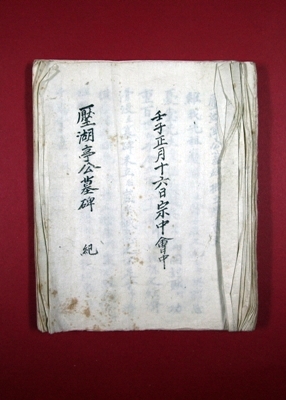 壬子正月十六日宗中會中
壓湖亭公墓碑 紀